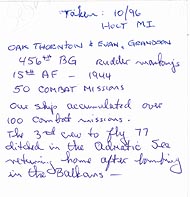 Taken: 10/96
Holt MI
OAK THORNTON & EVAN, GRANDSON
456th BG rudder markings
15th AF – 1944
50 COMBAT MISSIONS
One ship accumulated over
100 Combat missions.
The 3rd crew to fly 77
ditched in the Adriatic Sea
returning home after bombing
in the Balkans —